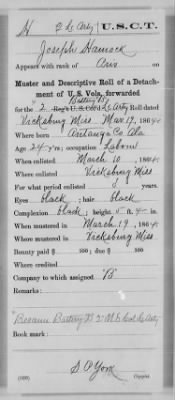 H 2 L. Arty U.S.C.T.
Joseph Hamock
Appears with rank of Priv on
Muster and Descriptive Roll of a Detach-
ment of U. S. Vols. forwarded
for the 2 Reg't U.S. Col'd L. Arty Roll dated
Vicksburg Miss Mar 19, 1864.
Where born Autauga Co. Ala
Age 24 y'rs; occupation Labour
When enlisted March 10, 1864
Where enlisted Vicksburg Miss
For what period enlisted 3 years.
Eyes black; hair black
Complexion black; height 5 ft. 4 in.
When mustered in March 19, 1864
Where mustered in Vicksburg Miss.
Bounty paid $ 100; due $ 100
Where credited
Company to which assigned "B"
Remarks:
Became Battery
Book mark:
S. P. York
Copyist.